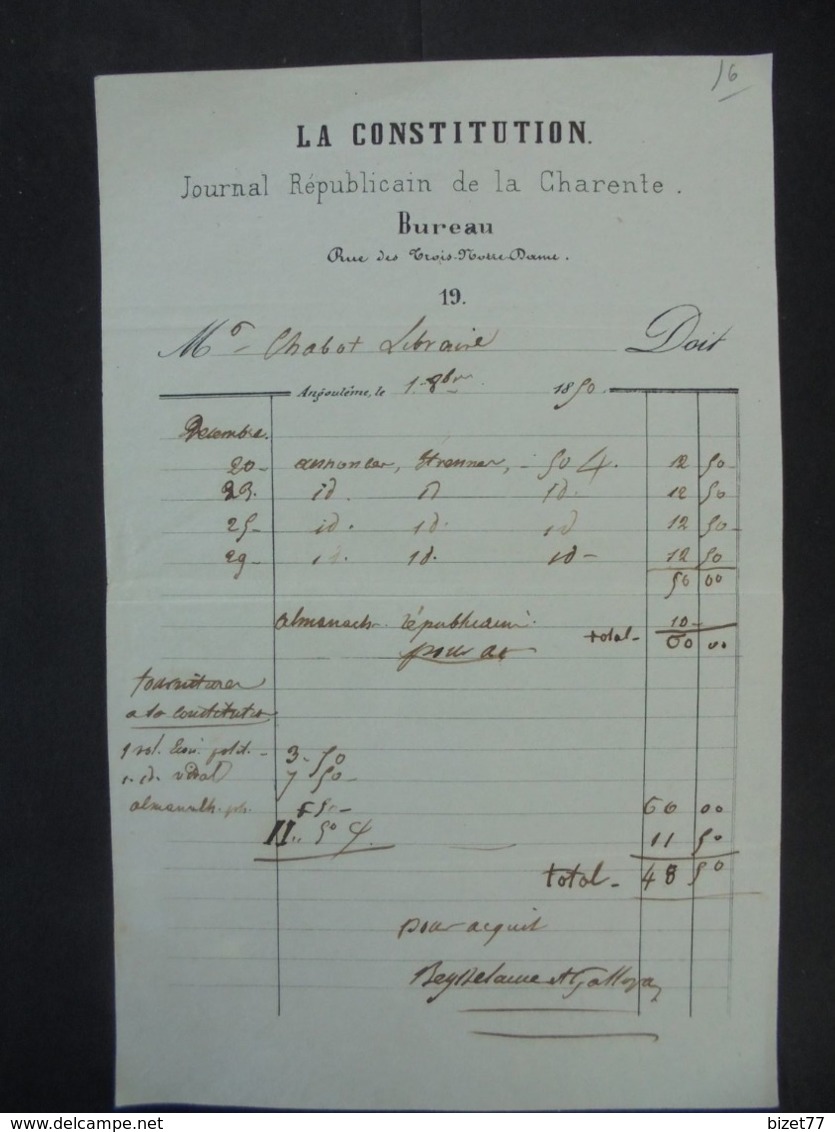 16
LA CONSTITUTION.
Journal Républicain de la Charente.
Bureau
Rue des Trois-Notre-Dame.
19.
Mr Chabot Libraire Doit
Angoulême, le 1. 1850
Décembre.
20 - annonces, Etrennes, - 50 12 50
23. id. id id. 12 50
25 - id. id. id 12 50
29 - id. id. id - 12 50
50 00
almanach républicain 10 -
total - 60 00
fournitures
a la constitution
1 vol. Econ. polit. - 3 - 50
1. id. Vidal 7 50 -
almanach. 50 - 60 00
11 .. 50 11 50
total - 48 50
pour acquit
delcampe.net
bizet77